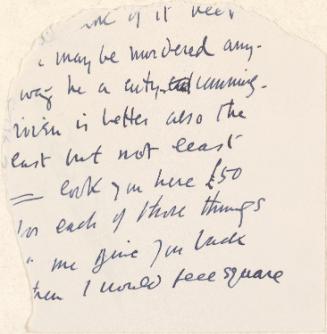 of it
may be murdered any-
way be a cunning-
is better also the
last but not least
look you here £50
for each of those things
me give you back
then I would feel square